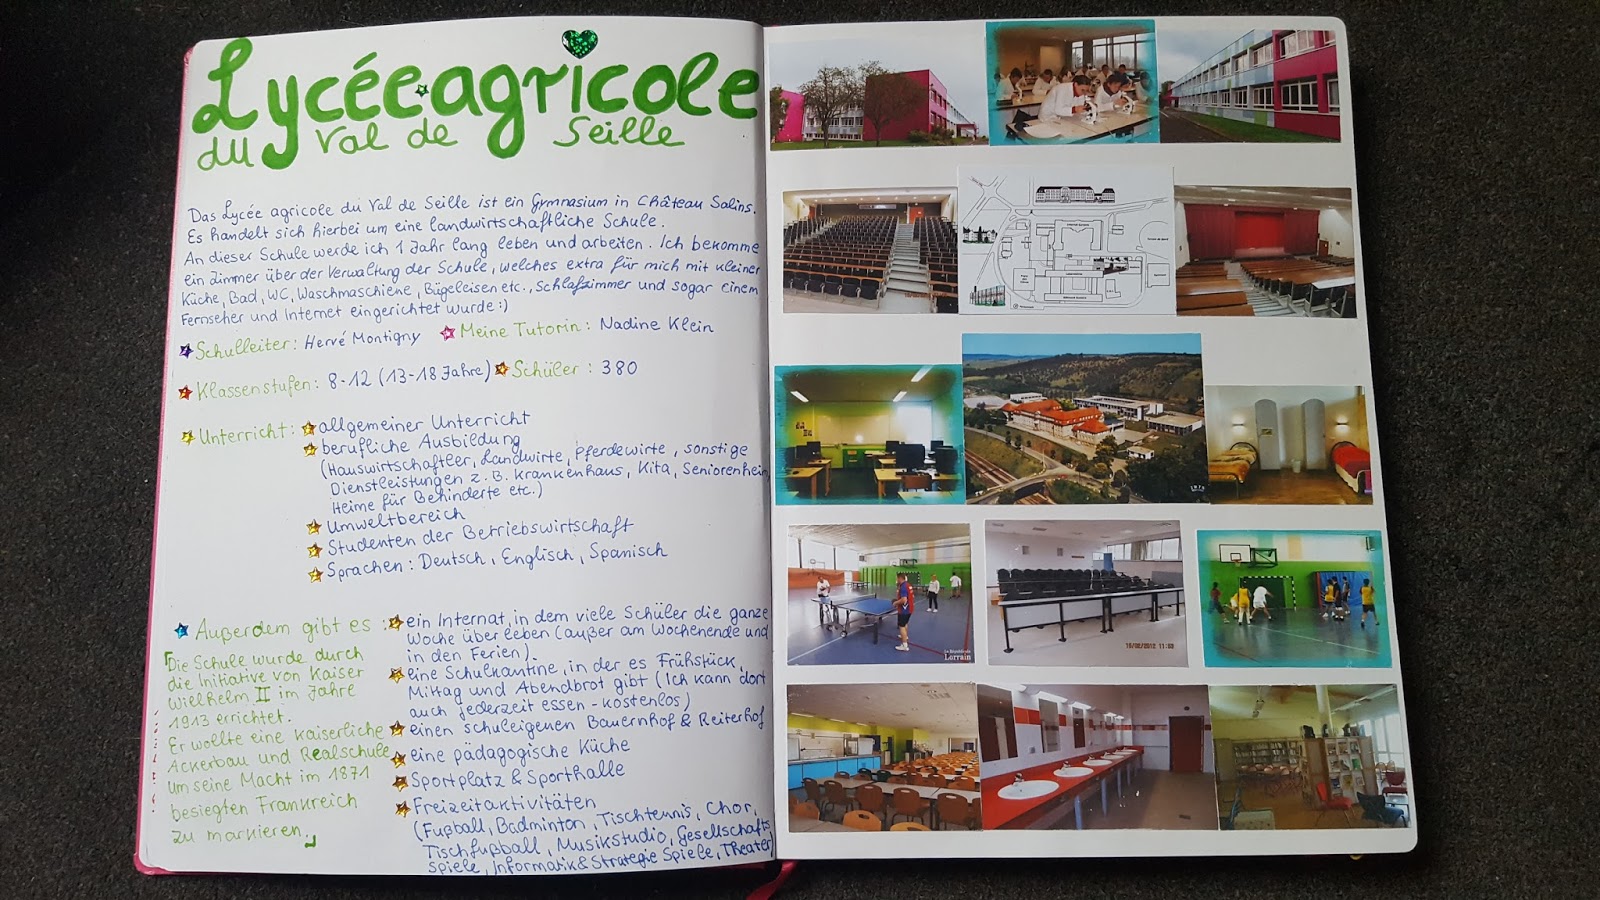 Lycée agricole
du Val de Seille
Das Lycée agricole du Val de Seille ist ein Gymnasium in Château Salins.
Es handelt sich hierbei um eine landwirtschaftliche Schule.
An dieser Schule werde ich 1 Jahr lang leben und arbeiten. Ich bekomme
ein Zimmer über der Verwaltung der Schule, welches extra für mich mit kleiner
Küche, Bad, WC, Waschmaschiene, Bügeleisen etc., Schlafzimmer und sogar einem
Fernseher und Internet eingerichtet wurde :)
Schulleiter: Hervé Montigny Meine Tutorin: Nadine Klein
Klassenstufen: 8-12 (13-18 Jahre) Schüler: 380
Unterricht: allgemeiner Unterricht
berufliche Ausbildung
(Hauswirtschaftler, Landwirte, Pferdewirte, sonstige
Dienstleistungen z.B. Krankenhaus, Kita, Seniorenheim,
Heime für Behinderte etc.)
Umweltbereich
Studenten der Betriebswirtschaft
Sprachen: Deutsch, Englisch, Spanisch
Außerdem gibt es: ein Internat, in dem viele Schüler die ganze
Woche über leben (außer am Wochenende und
in den Ferien).
eine Schulkantine, in der es Frühstück,
Mittag und Abendbrot gibt (Ich kann dort
auch jederzeit essen - kostenlos)
einen schuleigenen Bauernhof & Reiterhof
eine pädagogische Küche
Sportplatz & Sporthalle
Freizeitaktivitäten
(Fußball, Badminton, Tischtennis, Chor,
Tischfußball, Musikstudio, Gesellschafts
spiele, Informatik & Strategie Spiele, Theater)
Die Schule wurde durch
die Initiative von Kaiser
Wielhelm II im Jahre
1913 errichtet.
Er wollte eine kaiserliche
Ackerbau und Realschule
um seine Macht im 1871
besiegten Frankreich
zu markieren.
Lorrain
11:03